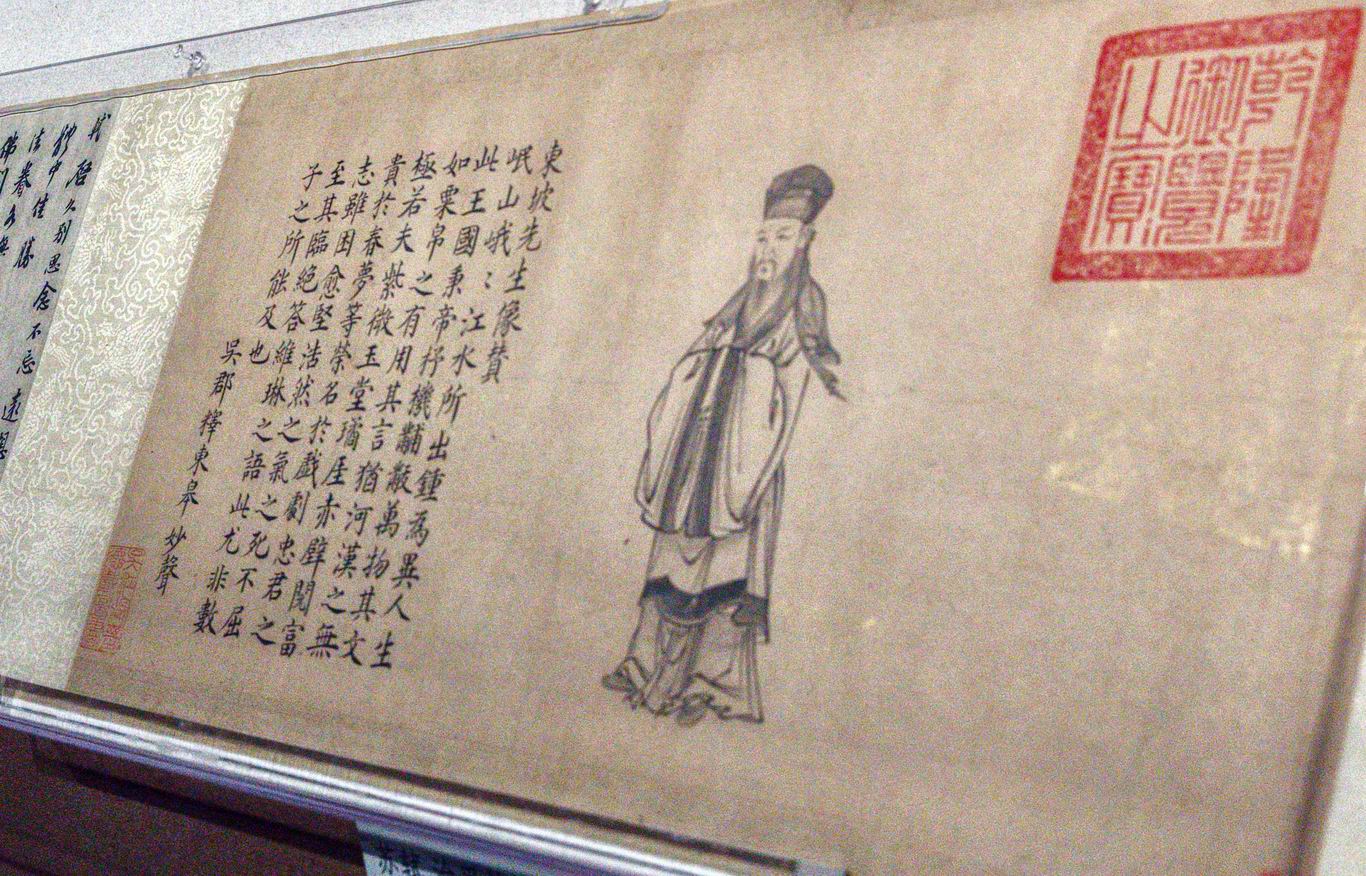 乾隆
御覽
之寶
東坡先生像贊
岷山峨〻江水所出鍾為異人生
此王國秉帝杼機黼黻萬物其文
如粟帛之有用其言猶河漢之無
極若夫紫微玉堂璚厓赤壁閱富
貴於春夢等榮名於戲劇忠君之
志雖困愈堅浩然之氣之死不屈
至其臨絕答維琳之語此尤非數
子之所能及也
吳郡釋東皋妙聲
軾啓久別思念不忘遠想
體中佳勝
法眷各無
佛
苏轼